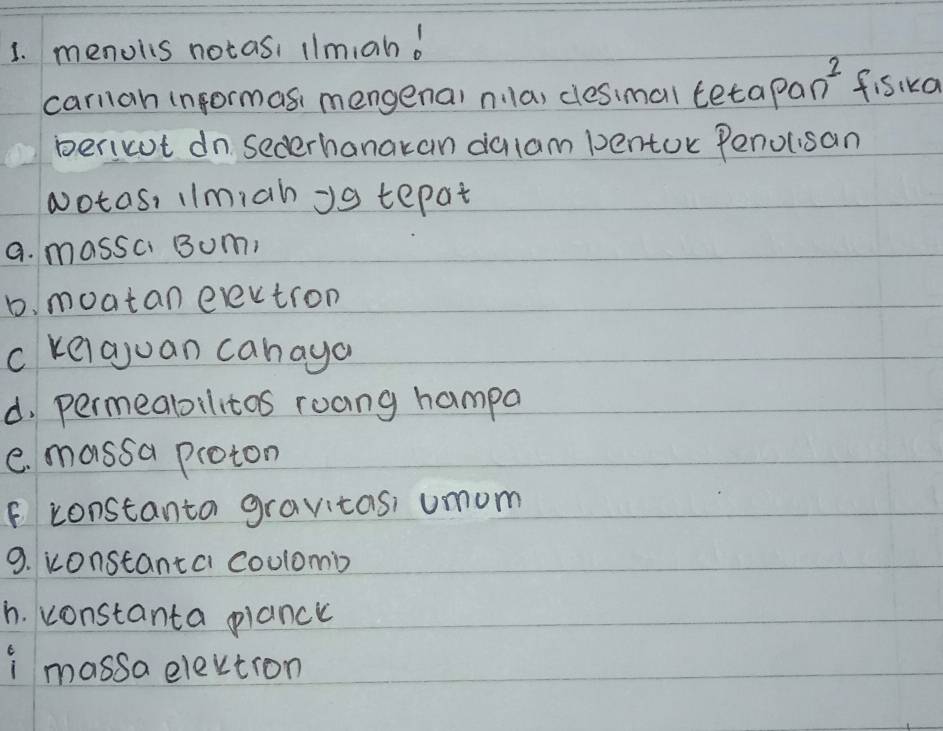 1. menulis notasi ilmiah!
carilah informasi mengenai nilai desimal tetapan² fisika
berikut dn sederhanakan dalam bentuk Penulisan
Notasi ilmiah yg tepat
a. massa Bumi
b. muatan elektron
c kelajuan cahaya
d. permeabilitas ruang hampa
e. massa proton
f konstanta gravitasi umum
g. konstanta Coulomb
h. konstanta planck
i massa elektron